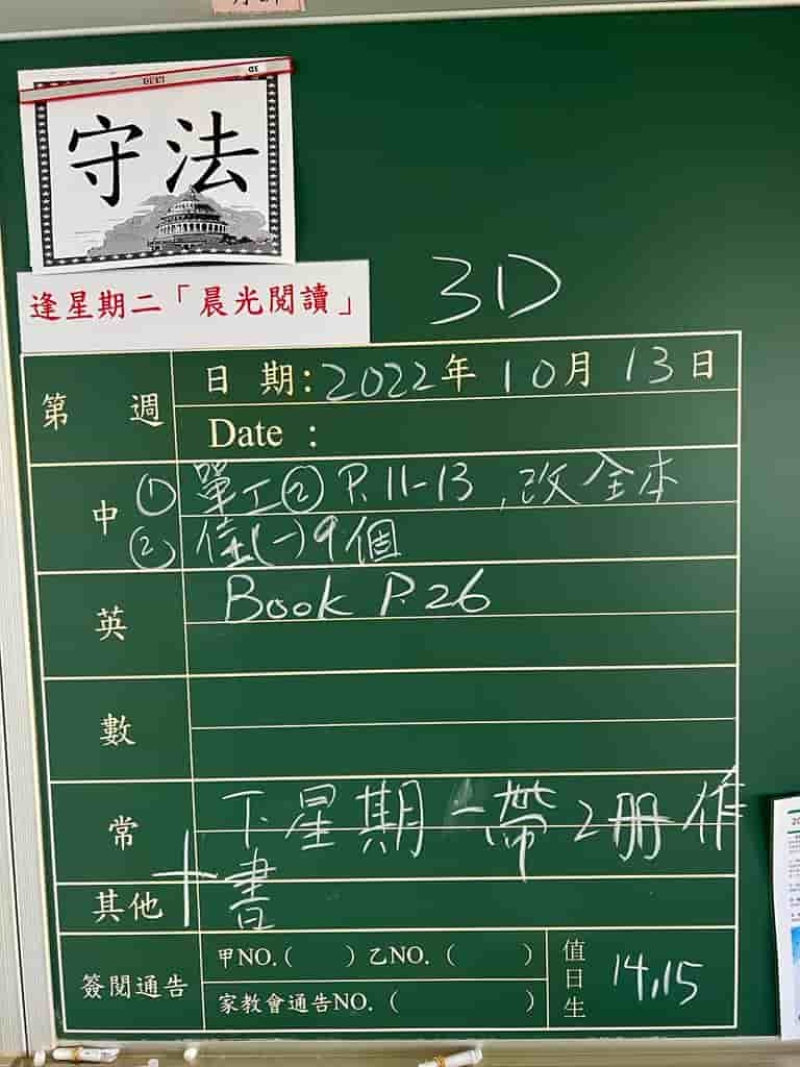 守法
逢星期二「晨光閱讀」
3D
第 週
日 期: 2022年 10月 13日
Date :
中 ① 單工② P.11-13 , 改全本
② (一) 9個
英 Book P.26
數
常 下星期一帶2冊作
十書
其他
簽閱通告 甲NO.( ) 乙NO. ( )
家教會通告NO. ( )
值日生 14,15